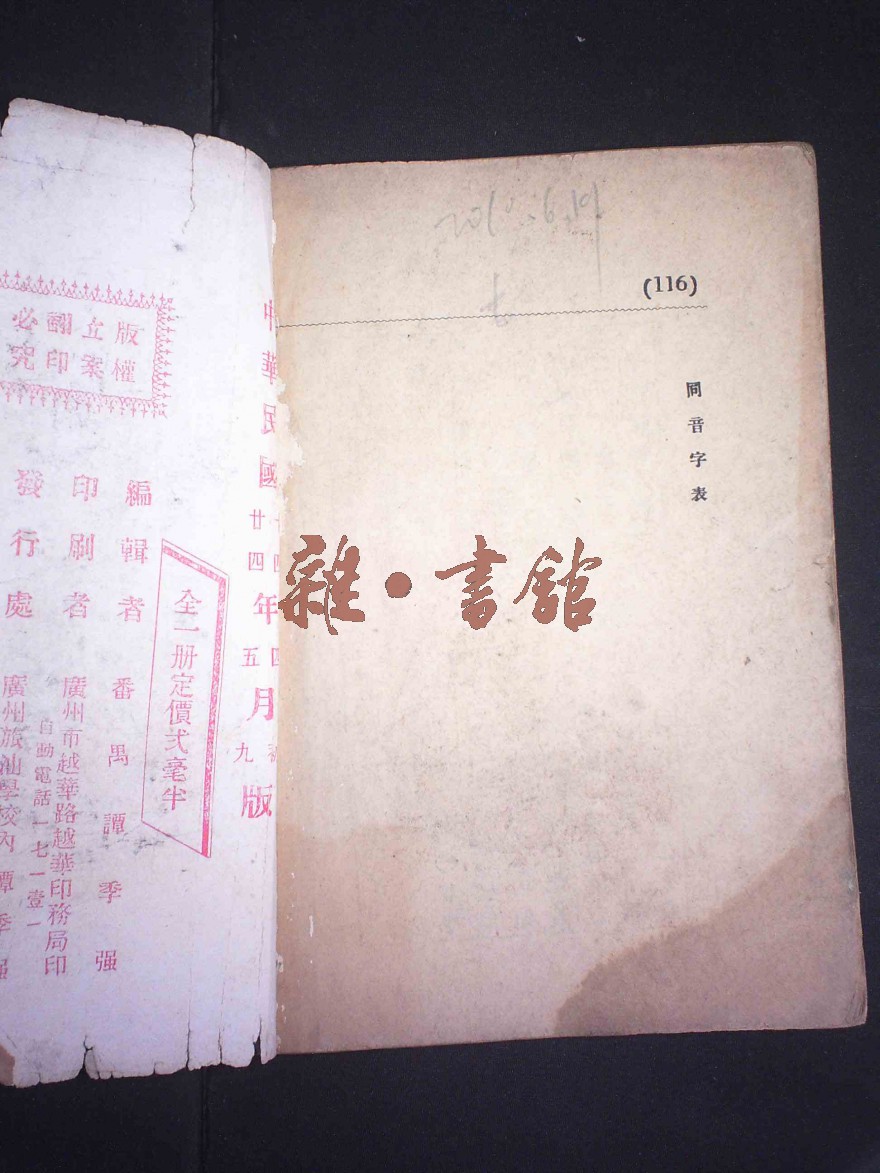 (116)
同音字表
2010.6.19
雜·書館
中華民國
廿四年五月九版
全一册定價弍毫半
編輯者 番禺譚季强
印刷者 廣州市越華路越華印務局印
自動電話一七一壹一
發行處 廣州旅汕學校內譚季强
版權
立案
翻印
必究